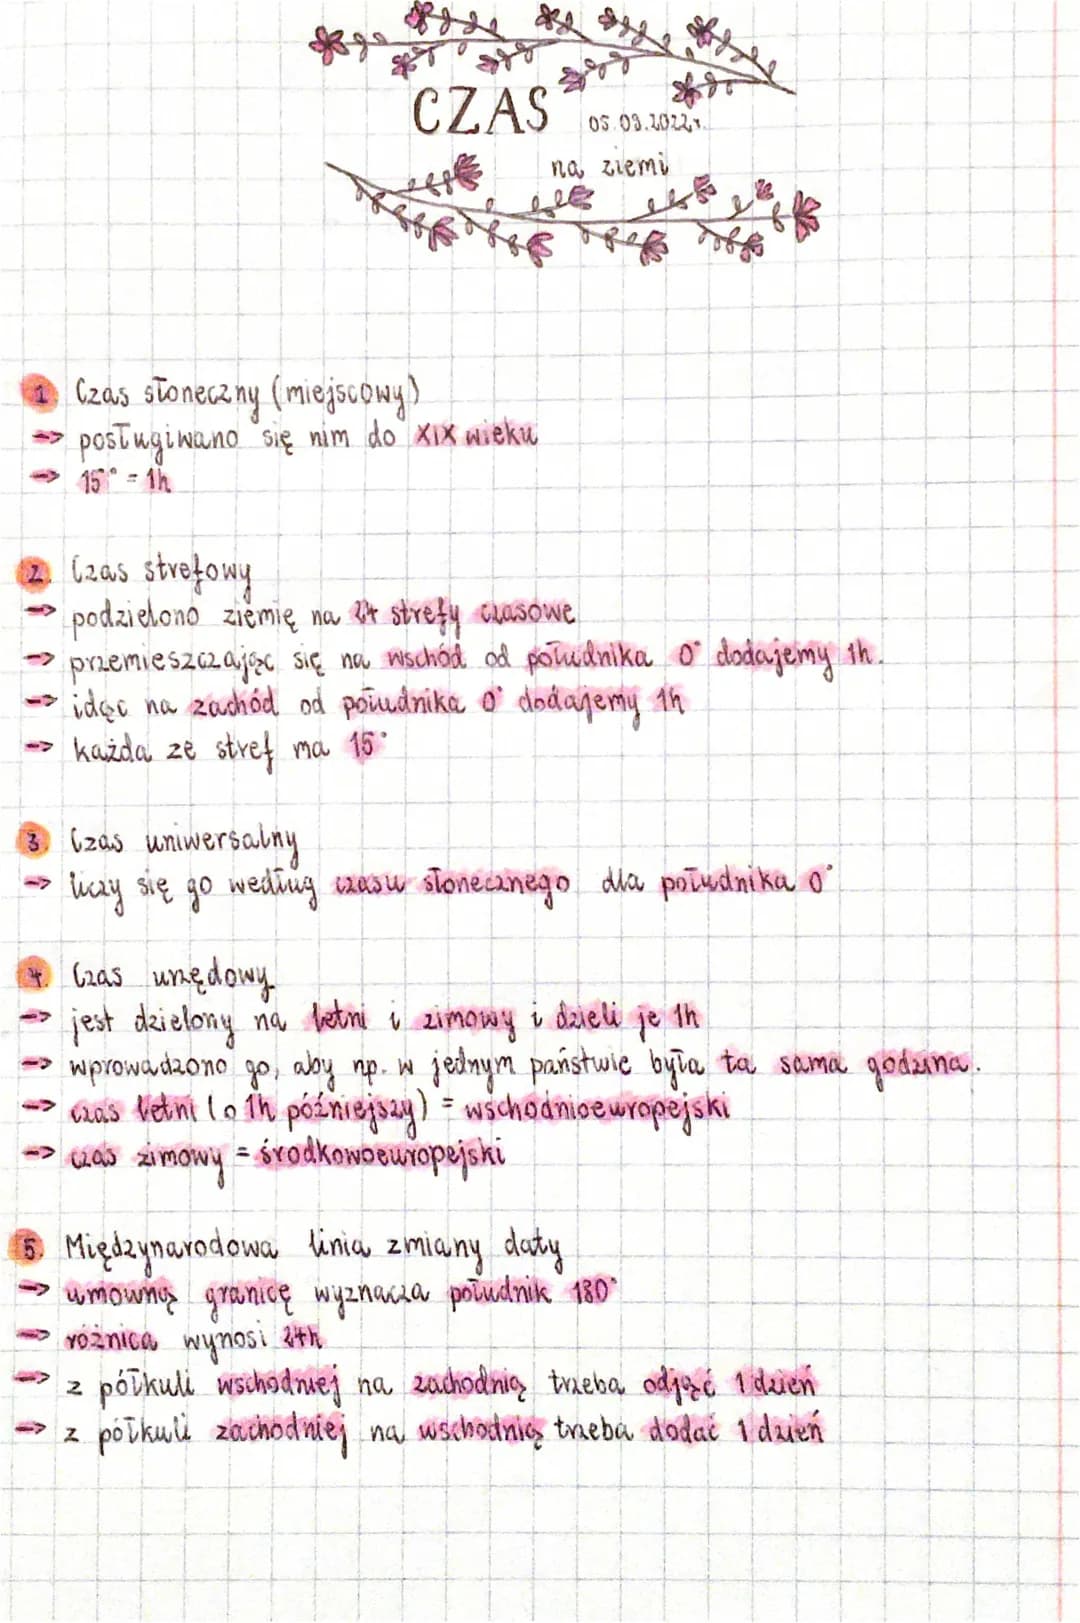 CZAS 05.03.2022r.
na ziemi
1. Czas słoneczny (miejscowy)
→ posługiwano się nim do XIX wieku
→ 15° = 1h
2. Czas strefowy
→ podzielono ziemię na 24 strefy czasowe
→ przemieszczając się na wschód od południka 0° dodajemy 1h.
→ idąc na zachód od południka 0° dodajemy 1h
→ każda ze stref ma 15°
3. Czas uniwersalny
→ liczy się go według czasu słonecznego dla południka 0°
4. Czas urzędowy
→ jest dzielony na letni i zimowy i dzieli je 1h
→ wprowadzono go, aby np. w jednym państwie była ta sama godzina.
→ czas letni (o 1h późniejszy) = wschodnioeuropejski
→ czas zimowy = środkowoeuropejski
5. Międzynarodowa linia zmiany daty
→ umowną granicę wyznacza południk 180°
→ różnica wynosi 24h
→ z półkuli wschodniej na zachodnią trzeba odjąć 1 dzień
→ z półkuli zachodniej na wschodnią trzeba dodać 1 dzień